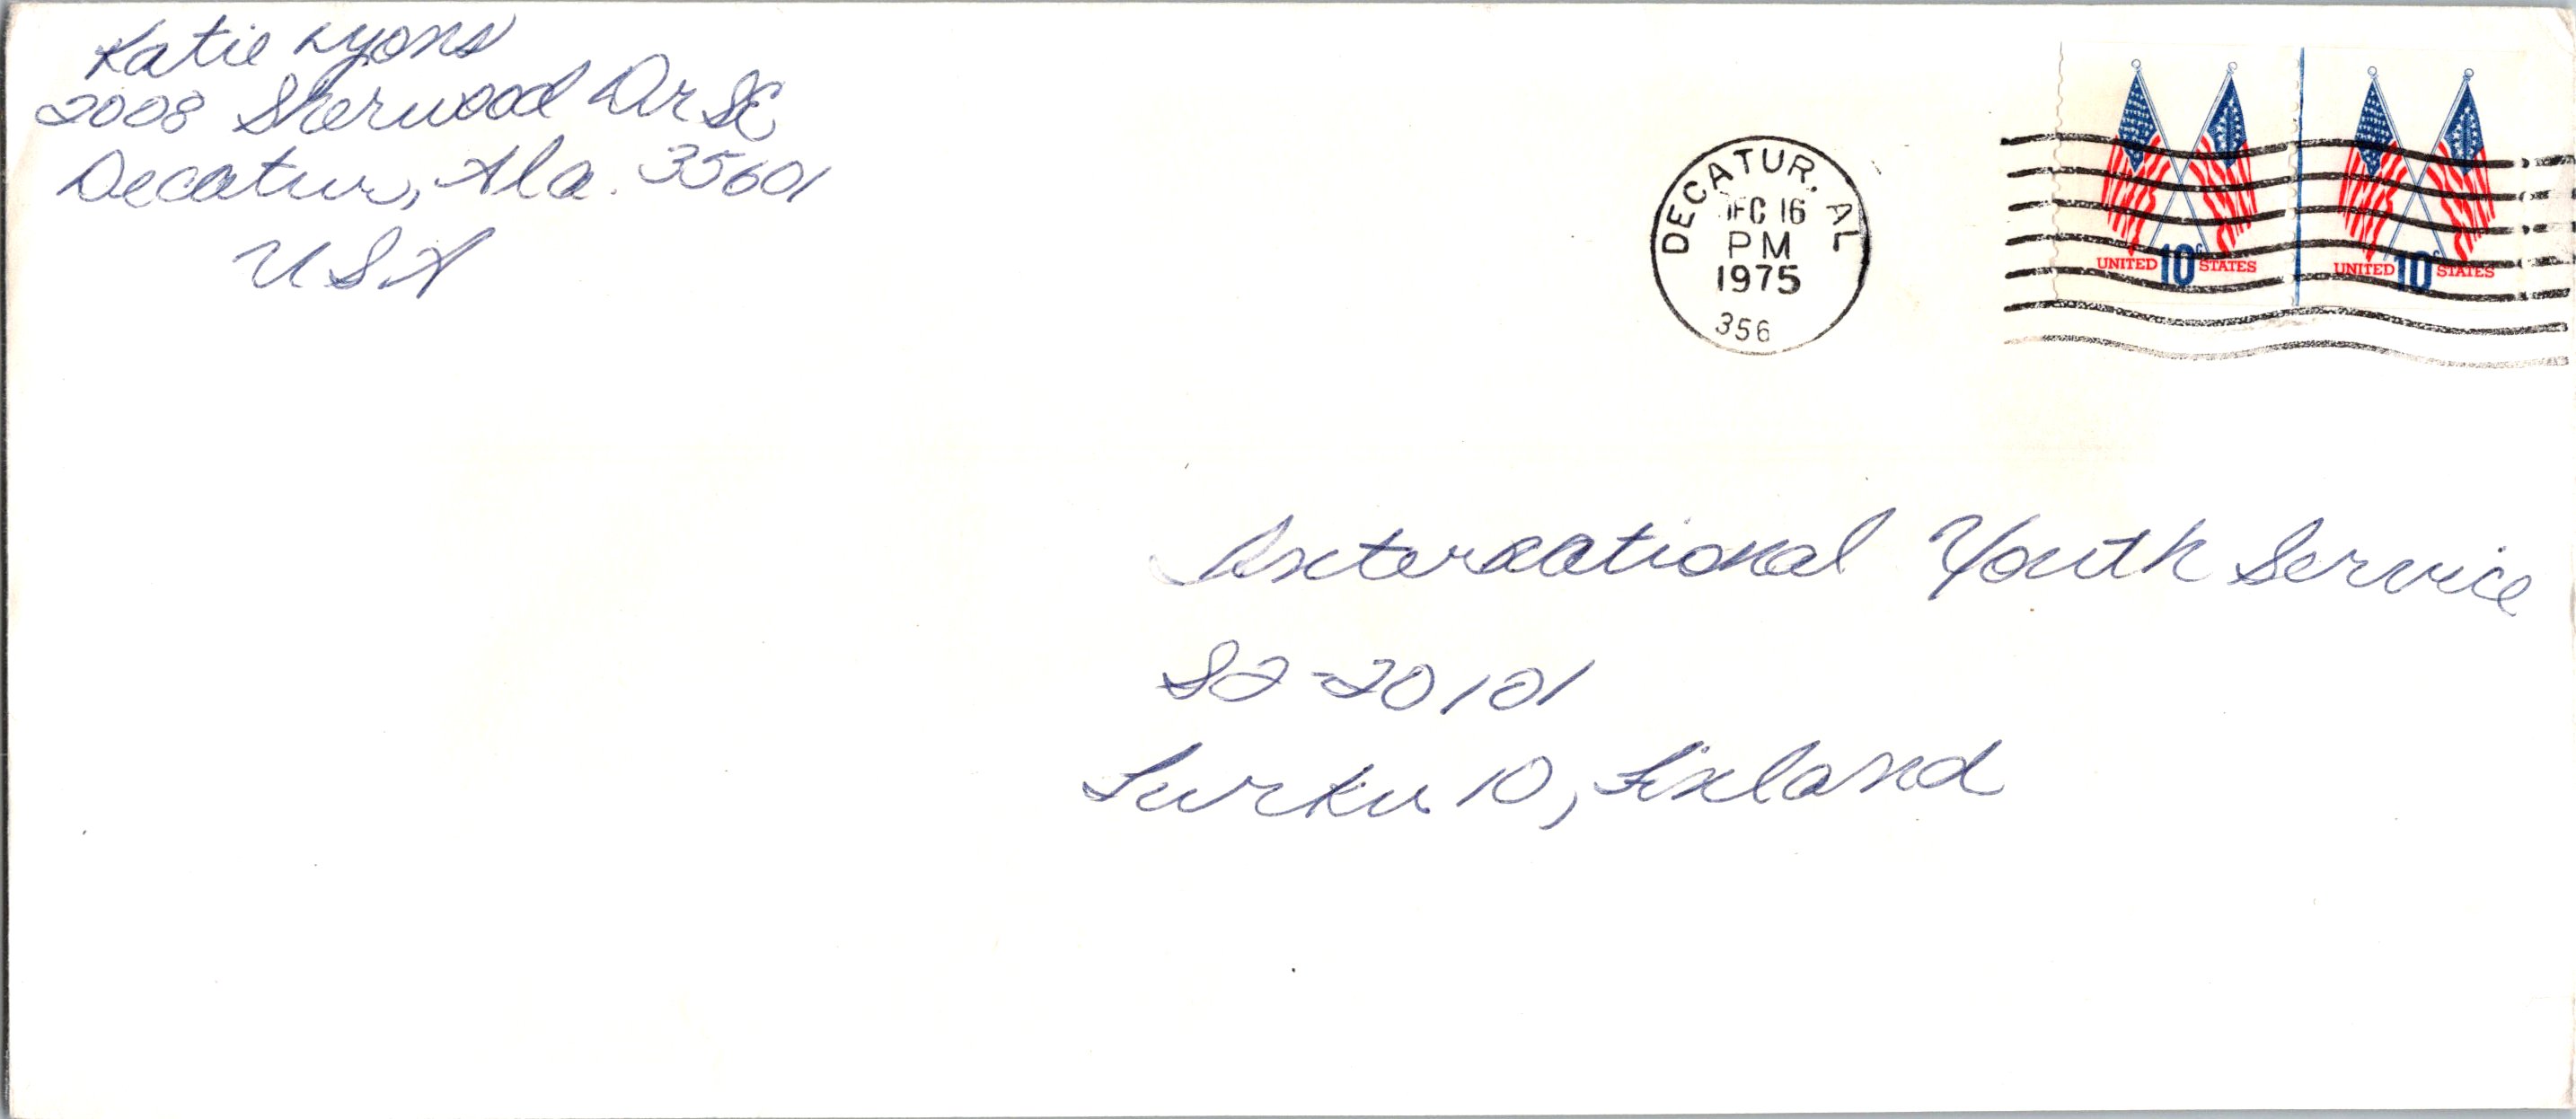 Katie Lyons
2008 Sherwood Dr SE
Decatur, Ala. 35601
USA
DECATUR, AL
DEC 16
PM
1975
356
UNITED 10c STATES
UNITED 10c STATES
International Youth Service
S2-20101
Turku 10, Finland